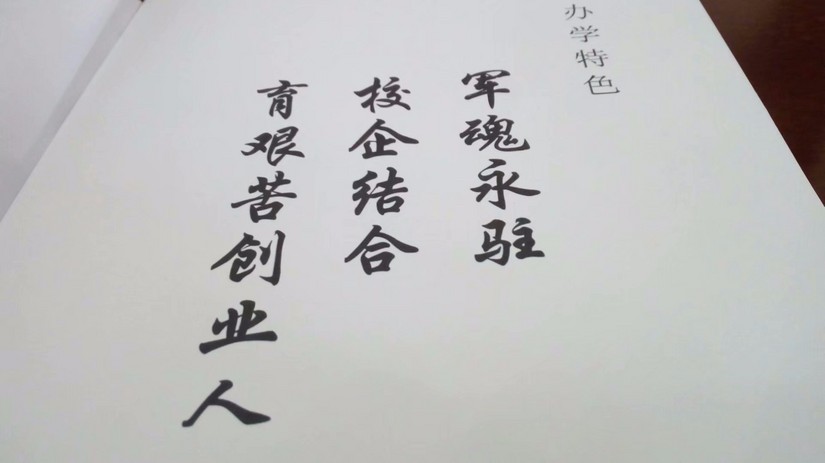 办学特色
军魂永驻
校企结合
育艰苦创业人